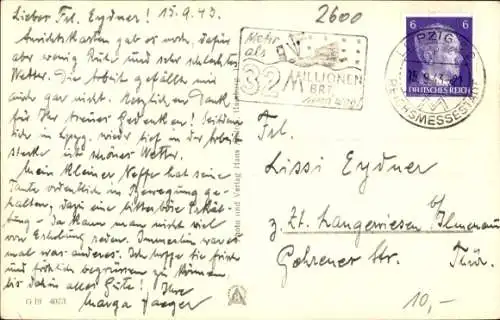 Lieber Frl. Eydner! 15.9.43.
Ansichtskarten gab es noch, dafür
aber wenig Ruhe und sehr schlechtes
Wetter. Die Arbeit gefällt mir
auch gar nicht. Herzlichen Dank
für Ihr treues Gedenken! Seitdem
ich in Lpzg. wieder tief in der Arbeit
stecke ist schönes Wetter.
Mein kleiner Neffe hat seine
Tante ordentlich in Bewegung ge-
halten, dazu eine bitterböse Erkäl-
tung - da kann man nicht viel
von Erholung reden. Immerhin war es
mal was anderes. Ich hoffe Sie frisch
und fröhlich begrüssen zu können,
bis dahin alles Gute! Ihre
Marga Jaeger
G 19 4073
2600
Mehr
als
32 MILLIONEN
BRT
LEIPZIG
15.9.43
REICHSMESSESTADT
6 6
DEUTSCHES REICH
Photo und Verlag Hans
Frl.
Lissi Eydner
z. Zt. Langewiesen b/Ilmenau
Gehrener Str. Thür.
10,-